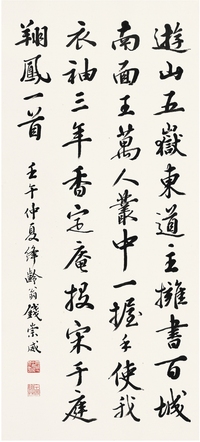 遊山五嶽東道主擁書百城
南面王萬人叢中一握手使我
衣袖三年香定庵投宋于庭
翔鳳一首
壬午仲夏絳齡翁錢崇威